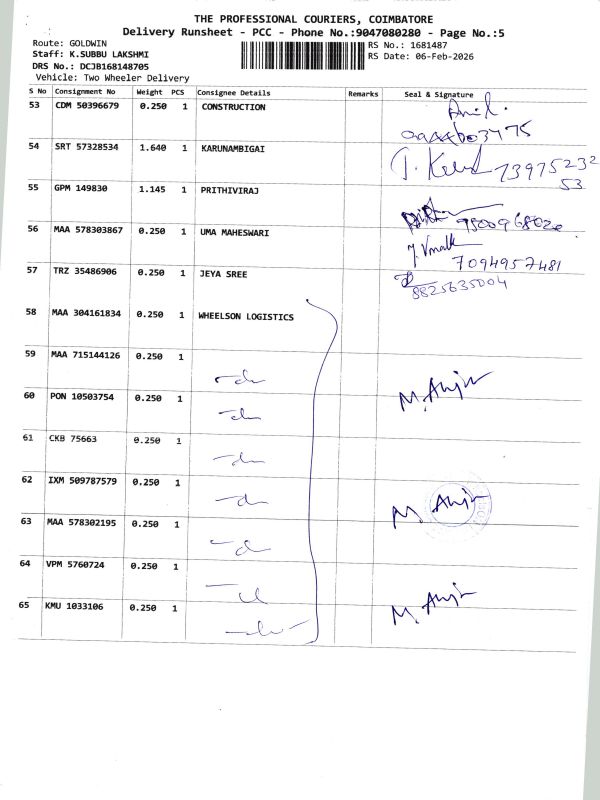 THE PROFESSIONAL COURIERS, COIMBATORE
Delivery Runsheet - PCC - Phone No.:9047080280 - Page No.:5
Route: GOLDWIN
RS No.: 1681487
Staff: K.SUBBU LAKSHMI
RS Date: 06-Feb-2026
DRS No.: DCJB168148705
Vehicle: Two Wheeler Delivery
S No Consignment No Weight PCS Consignee Details Remarks Seal & Signature
53 CDM 50396679 0.250 1 CONSTRUCTION
54 SRT 57328534 1.640 1 KARUNAMBIGAI
55 GPM 149830 1.145 1 PRITHIVIRAJ
56 MAA 578303867 0.250 1 UMA MAHESWARI
7094957481
57 TRZ 35486906 0.250 1 JEYA SREE
8825635004
58 MAA 304161834 0.250 1 WHEELSON LOGISTICS
59 MAA 715144126 0.250 1
60 PON 10503754 0.250 1
61 CKB 75663 0.250 1
62 IXM 509787579 0.250 1
63 MAA 578302195 0.250 1
64 VPM 5760724 0.250 1
65 KMU 1033106 0.250 1